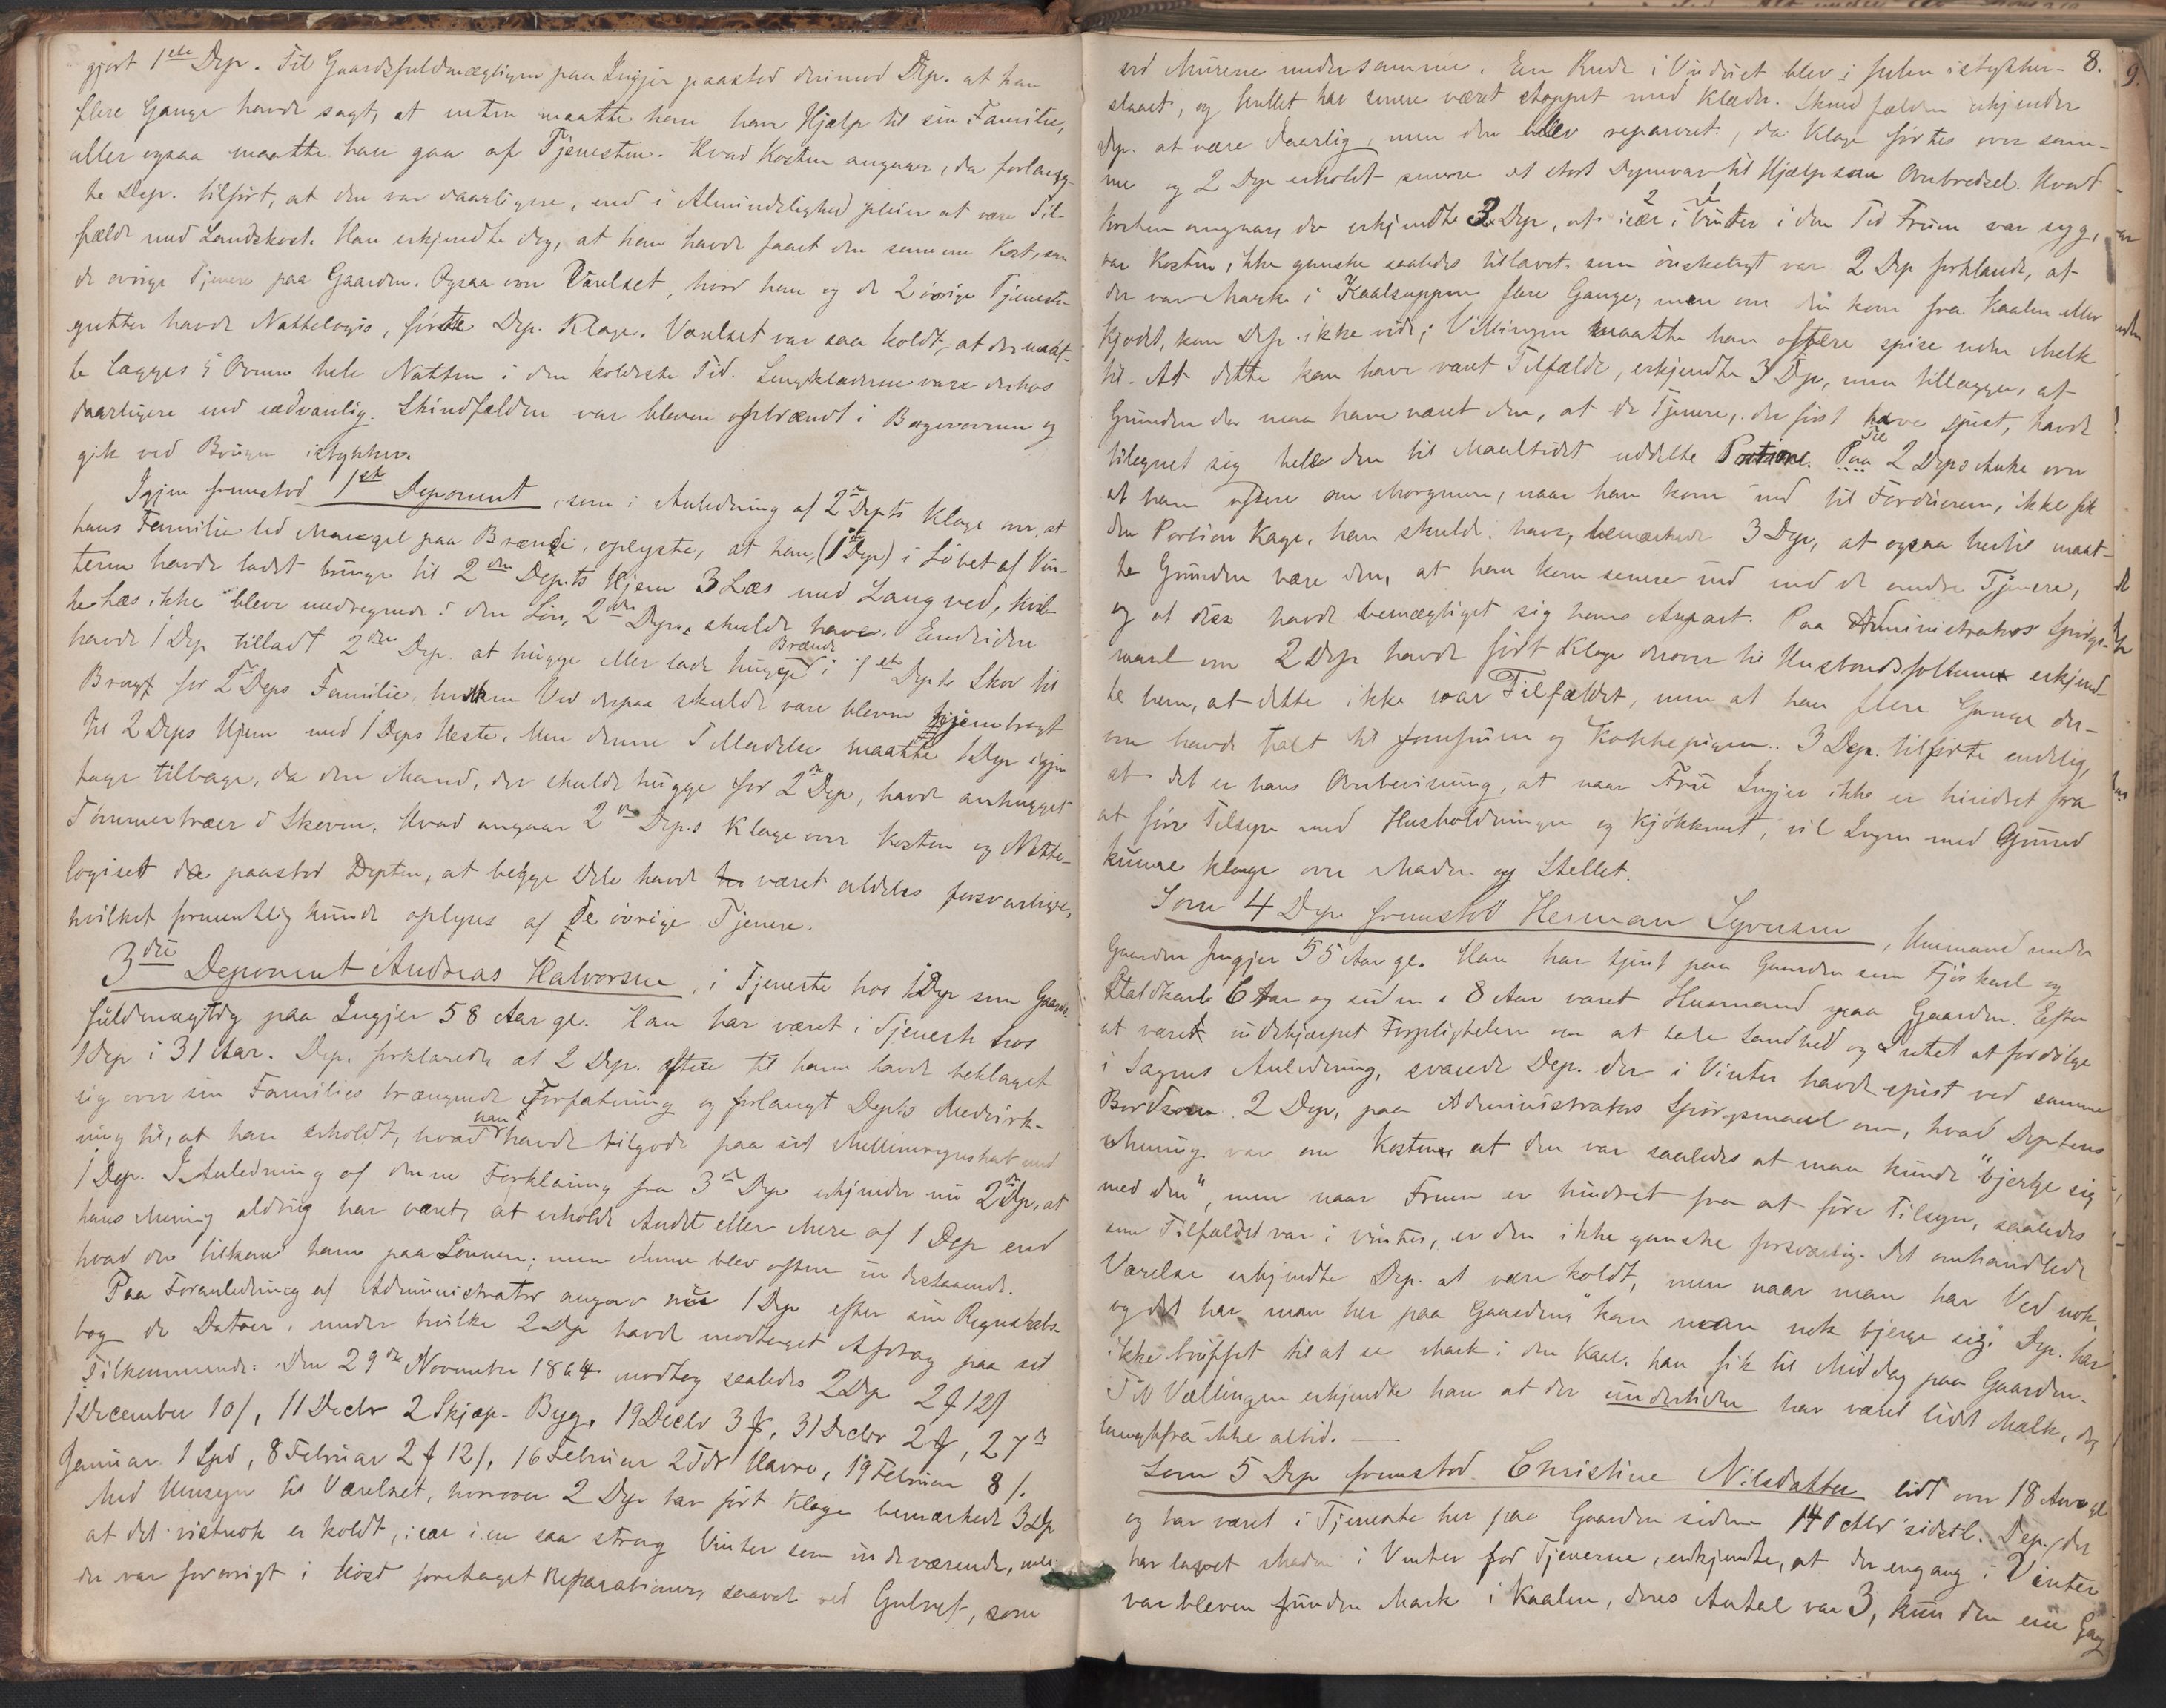 gjort 1ste Dep. Til Gaardsfuldmægtigen paa Ingjer paastod derimod Dep. at han
flere Gange havde sagt, at enten maatte han have Hjælp til sin Familie,
eller ogsaa maatte han gaa af Tjenesten. Hvad Kosten angaaer, da forlang-
te Dep. tilført, at den var daarligere, end i Almindelighed pleier at være Til-
fælde med Landskost. Han erkjendte dog, at han havde faaet den samme Kost, som
de øvrige Tjenere paa Gaarden. Ogsaa over Værelset, hvor han og de 2 øvrige Tjeneste-
gutter havde Nattelogis, førte Dep. Klage. Værelset var saa koldt, at der maat-
te lægges i Ovnen hele Natten i den koldeste Tid. Sengklæderne vare derhos
daarligere end sædvanlig. Skindfælden var bleven opbrændt i Bagerovnen og
gik ved Brugen istykker.
Igjen fremstod 1ste Deponent, som i Anledning af 2den Depts Klage over, at
hans Familie led Mangel paa Brænde, oplyste, at han, (1ste Dep) i Løbet af Vin-
teren havde ladet bringe til 2den Dep.ts Hjem 3 Læs med Langved, hvil-
ke Læs ikke bleve medregnede i den Løn, 2den Dep. skulde have. Endvidere
havde 1 Dep tilladt 2den Dep. at hugge eller lade hugge Brænde i 1ste Depts Skov til
Brug for 2den Deps Familie, hvilken Ved ogsaa skulde være bleven hjembragt
til 2 Deps Hjem med 1 Deps Heste. Men denne Tilladelse maatte 1 Dep igjen
tage tilbage, da den Mand, der skulde hugge for 2den Dep, havde anhugget
Tømmertræer i Skoven. Hvad angaar 2den Dep.s Klage over Kosten og Natte-
logiset da paastod Depten, at begge Dele havde været aldeles forsvarlige,
hvilket formentlig kunde oplyses af de øvrige Tjenere.
3die Deponent Andreas Halvorsen, i Tjeneste hos 1 Dep som Gaards-
fuldmægtig paa Ingjer 58 Aar gl. Han har været i Tjeneste hos
1 Dep i 31 Aar. Dep. forklarede, at 2 Dep. oftere til ham havde beklaget
sig over sin Families trængende Forfatning og forlangt Dep.ts Medvirk-
ning til, at han erholdt, hvad han havde tilgode paa sit Mellemregnskab med
1 Dep. I Anledning af denne Forklaring fra 3die Dep erkjender nu 2den Dep, at
hans Mening aldrig har været, at erholde Andet eller Mere af 1 Dep end
hvad der tilkom ham paa Lønnen; men denne blev ofte indestaaende.
Paa Foranledning af Administrator angav nu 1 Dep efter sin Regnskabs-
bog de Datoer, under hvilke 2 Dep havde modtaget Afdrag paa sit
Tilkommende: Den 29de November 1864 modtog saaledes 2 Dep 2 ₰ 12 ß
1 December 10 ß, 11 Decbr 2 Skjæp. Byg, 19 Decbr 3 ₰, 31 Decbr 2 ₰, 27de
Januar 1 Spd, 8 Februar 2 ₰ 12 ß, 16 Februar 2 Tdr Havre, 19 Februar 8 ß.
Med Hensyn til Værelset, hvorover 2 Dep har ført Klage bemærkede 3 Dep
at det vistnok er koldt, især i en saa streng Vinter som indeværende, men
der var forøvrigt i Høst foretaget Reparationer, saavel ved Gulvet, som
8.
ved Murene under samme. En Rude i Vinduet blev i Julen istykker-
slaaet, og Hullet har senere været stoppet med Klæder. Skindfælden erkjender
Dep. at være daarlig, men den blev repareret, da Klage førtes over sam-
me og 2 Dep erholdt senere et stort Dynevar til Hjælp som Overbredsel. Hvad
Kosten angaar, da erkjendte 3 Dep, at især i Vinter i den Tid Fruen var syg,
var Kosten ikke ganske saaledes tillavet, som ønskeligt var. 2 Dep forklarede, at
der var Mark i Kaalsuppen flere Gange, men om den kom fra Kaalen eller
Kjødet, kan Dep. ikke vide; Vællingen maatte han oftere spise uden Melk
til. At dette kan have været Tilfælde, erkjendte 3 Dep, men tillægger, at
Grunden der maa have været den, at de Tjenere, der først have spist, havde
tilegnet sig hele den til Maaltidet uddelte Portion. Paa 2 Deps Anke over
at han oftere om Morgenen, naar han kom ind til Fordureren, ikke fik
den Portion Kage, han skulde have, bemærkede 3 Dep, at ogsaa hertil maat-
te Grunden være den, at han kom senere ind end de andre Tjenere,
og at disse havde bemægtiget sig hans Anpart. Paa Administrators Spørgs-
maal om 2 Dep havde ført Klage derover til Husbondsfolkene erkjend-
te han, at dette ikke var Tilfældet, men at han flere Gange der-
om havde talt til Jomfruen og Kokkepigen. 3 Dep. tilførte endelig,
at det er hans Overbevisning, at naar Fru Ingjer ikke er hindret fra
at føre Tilsyn med Husholdningen og Kjøkkenet, vil Ingen med Grund
kunne klage over Maden og Stellet.
Som 4 Dep fremstod Herman Syversen, Husmand under
Gaarden Ingjer 55 Aar gl. Han har tjent paa Gaarden som Fjøskarl og
Staldkarl 6 Aar og siden i 8 Aar været Husmand paa Gaarden. Efter
at været indskjærpet Forpligtelsen om at tale Sandhed og Intet at fordølge
i Sagens Anledning, svarede Dep. der i Vinter havde spist ved samme
Bord som 2 Dep, paa Administrators Spørgsmaal om, hvad Deptens
Mening var om Kosten, at den var saaledes at man kunde "bjerge sig
med den", men naar Fruen er hindret fra at føre Tilsyn, saaledes
som Tilfældet var i Vinter, er den ikke ganske forsvarlig. Det omhandlede
Værelse erkjendte Dep. at være koldt, men naar man har Ved nok,
og det har man her paa Gaarden, "kan man nok bjerge sig". Dep. har
ikke truffet til at se Mark i den Kaal, han fik til Middag paa Gaarden.
Til Vællingen erkjendte han at der undertiden har været lidt Mælk, dog
langtfra ikke altid. —
Som 5 Dep fremstod Christine Nilsdatter lidt over 18 Aar gl
og har været i Tjeneste her paa Gaarden siden 14 Octbr sidstl. Dep, der
har lavet Maden i Vinter for Tjenerne, erkjendte, at der engang i Vinter
var bleven funden Mark i Kaalen, deres Antal var 3, kun den ene Gang